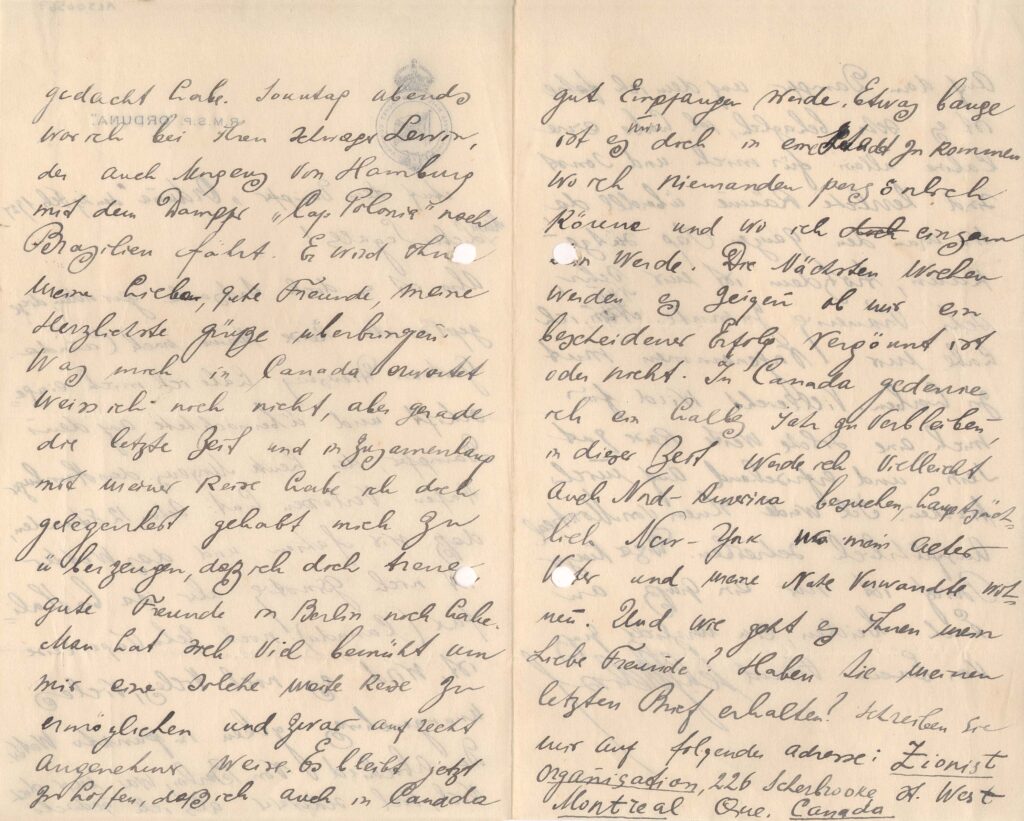 gedacht habe. Sonntag abends
war ich bei Ihren Schwager Lewin,
der auch Morgens von Hamburg
mit dem Dampfer „Cap Polonia" nach
Brazilien fährt. Er wird Ihnen
meine Lieben, gute Freunde, meine
Herzlichste grüße überbringen.
Was mich in Canada erwartet
Weiss ich noch nicht, aber gerade
die letzte Zeit und in Zusamenhang
mit meiner Reise habe ich doch
gelegenheit gehabt mich zu
überzeugen, daß ich doch treue,
gute Freunde in Berlin noch habe.
Man hat sich Viel bemüht um
mir eine solche weite Reise zu
ermöglichen und zwar auf recht
angenehmer Weise. Es bleibt jetzt
zu hoffen, daß ich auch in Canada
gut Empfangen werde. Etwas bange
ist es mir doch in eine Stadt zu kommen
wo ich niemanden persönlich
Könne und wo ich doch einsam
sein Werde. Die Nächsten Wochen
werden es zeigen ob mir ein
bescheidener Erfolg Vergönnt ist
oder nicht. In Canada gedenke
ich ein halbes Jahr zu Verbleiben,
in dieser Zeit werde ich Vielleicht
auch Nord-Amerika besuchen, hauptsäch-
lich New-York wo mein alter
Vater und meine Nate Verwandte woh-
nen. Und wie geht es Ihnen mein
Liebe Freunde? Haben Sie meinen
letzten Brief erhalten? Schreiben Sie
mir auf folgender adresse: Zionist
Organisation, 226 Scherbrooke st. West
Montreal Que. Canada
R.M.S.P. "ORDUÑA"